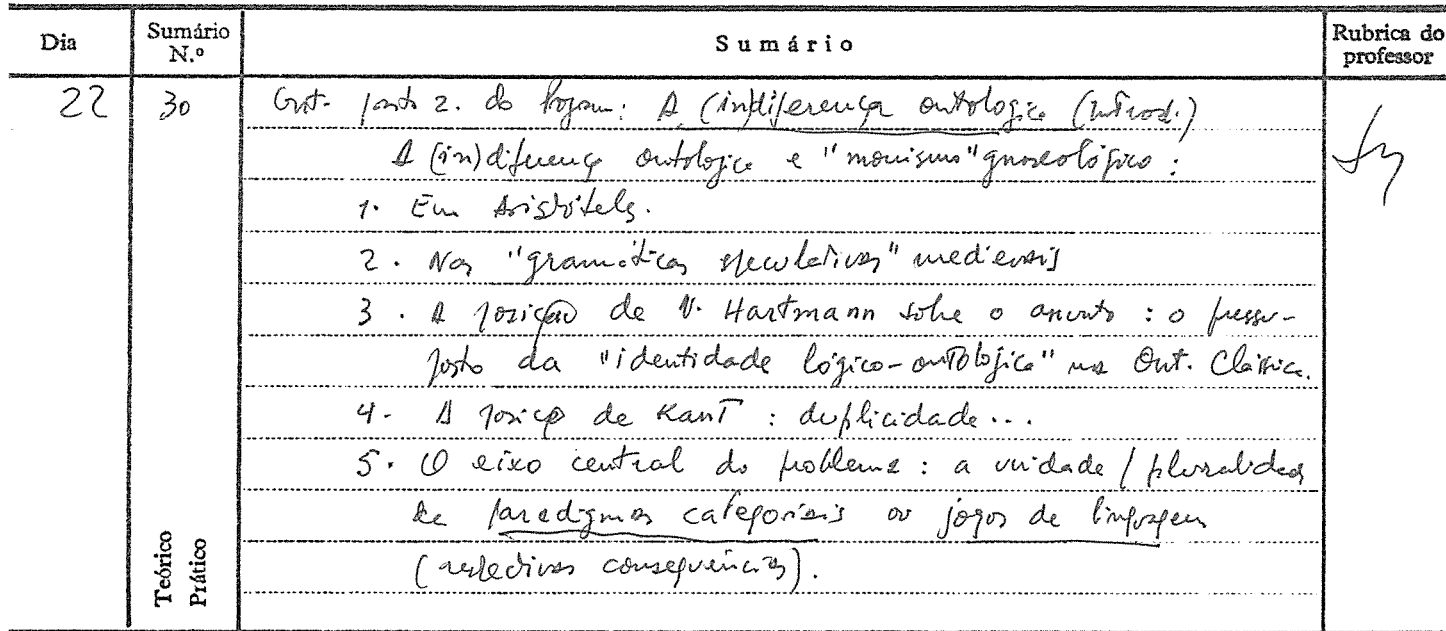 Dia Sumário N.º Sumário Rubrica do professor
22 30 Cont. ponto 2. do Program: A (in)diferença ontologica (introd.)
A (in)diferença ontologica e "monismo" gnoseológico:
1. Em Aristóteles.
2. Nas "gramáticas especulativas" medievais
3. A posição de N. Hartmann sobre o assunto: o pressu-
posto da "identidade lógico-ontológica" na Ont. Clássica.
4- A posição de Kant: duplicidade...
5. O eixo central do problema: a unidade/pluralidade
de paradigmas categoriais ou jogos de linguagem
(respectivas consequências).
Teórico
Prático